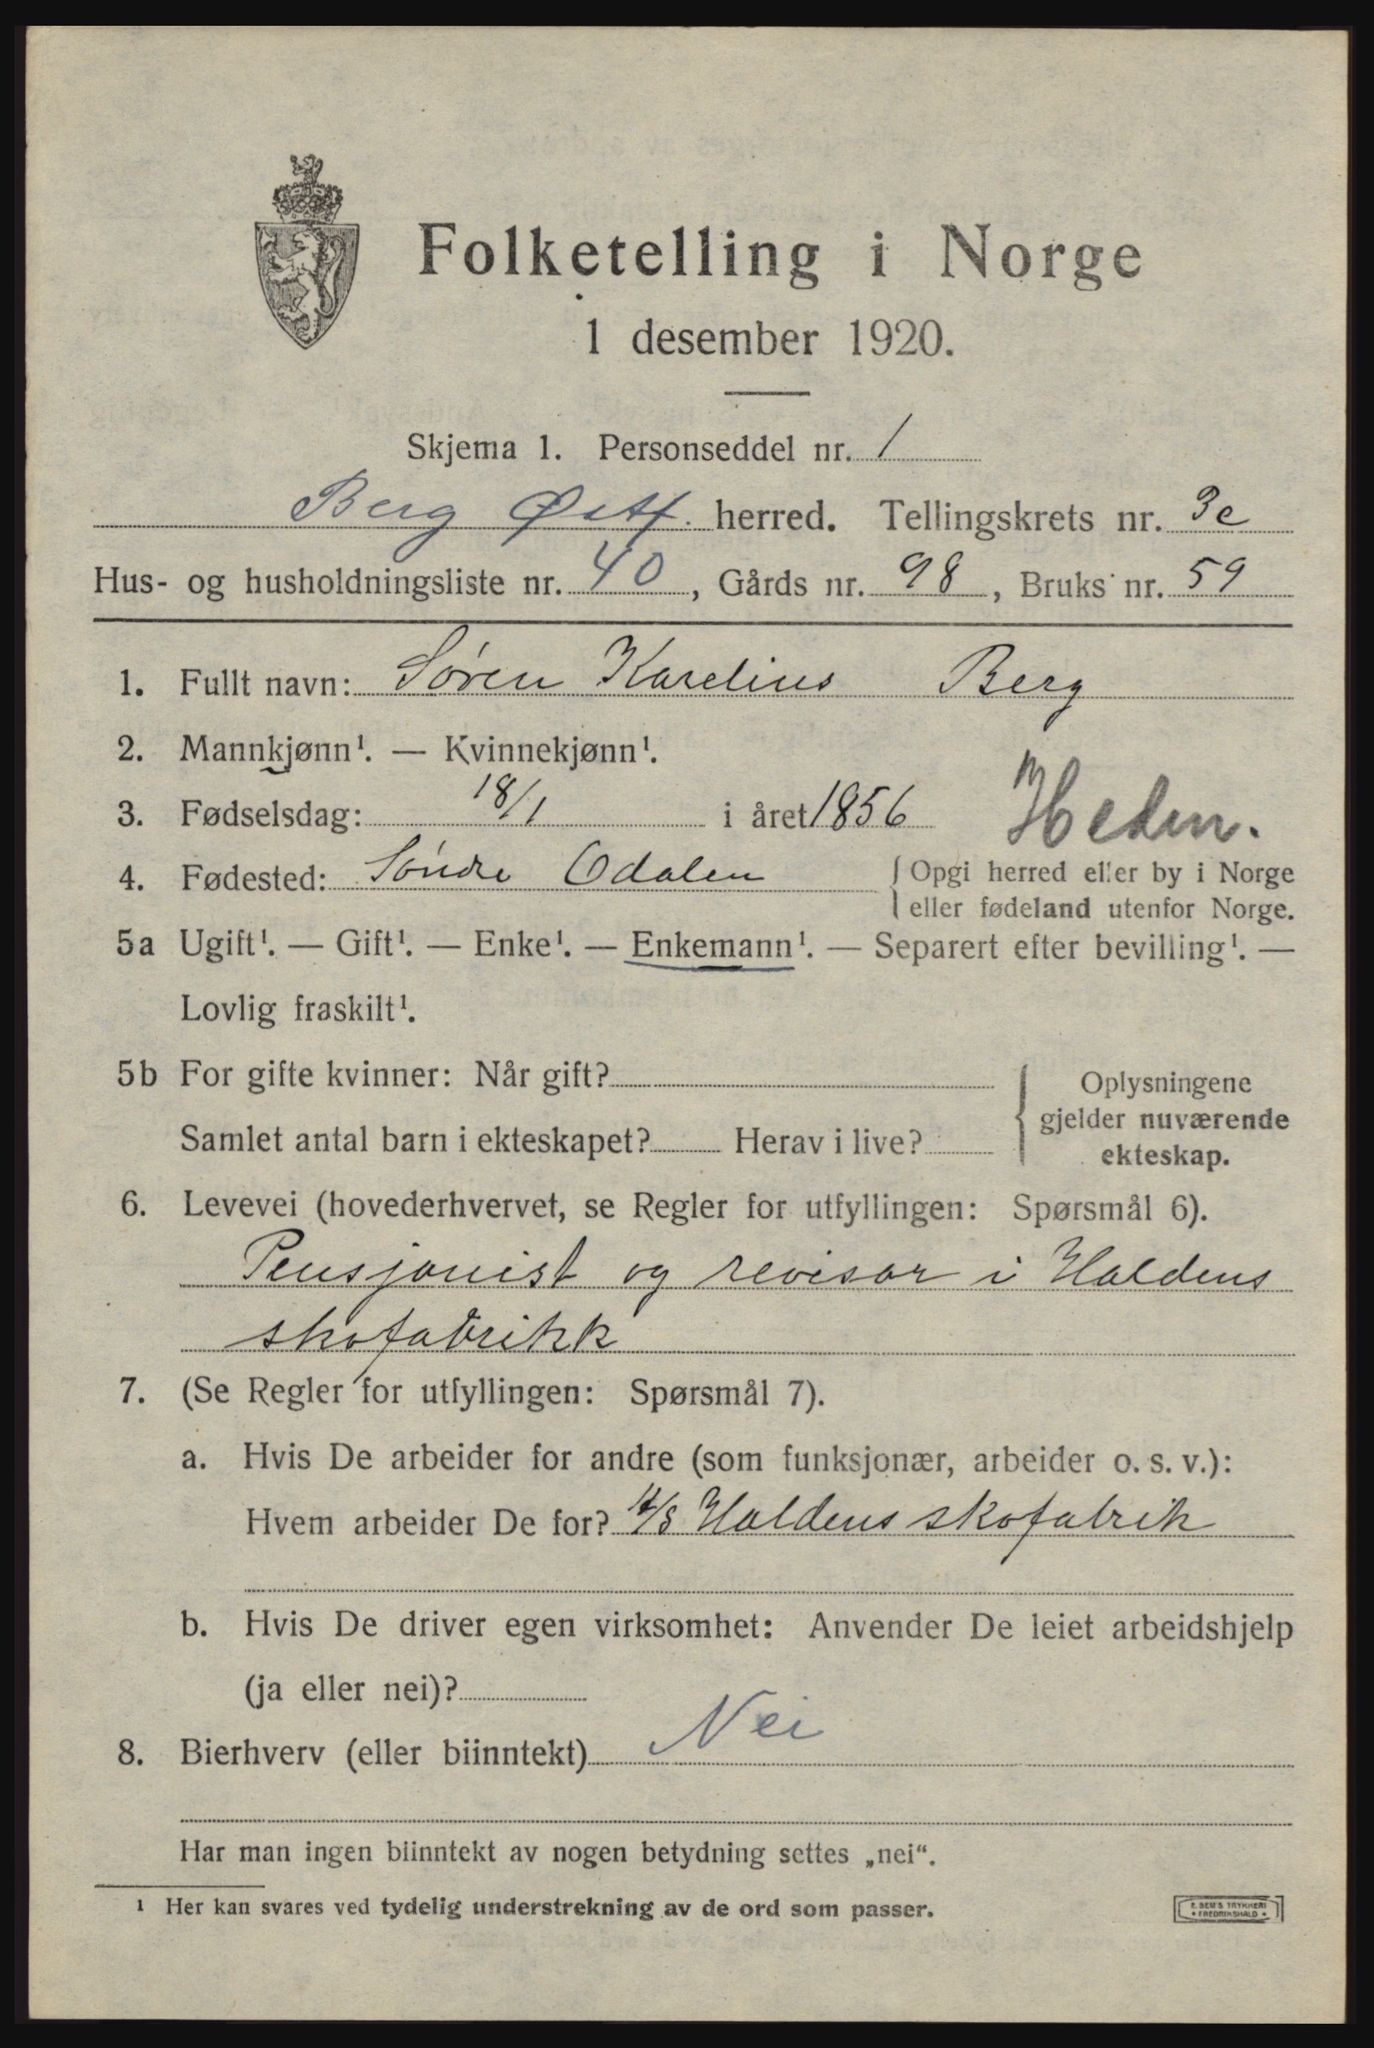 Folketelling i Norge
1 desember 1920.
Skjema 1. Personseddel nr. 1
Berg Østf. herred. Tellingskrets nr. 3c
Hus- og husholdningsliste nr. 40, Gårds nr. 98, Bruks nr. 59
1. Fullt navn: Søren Karelius Berg
2. Mannkjønn¹. — Kvinnekjønn¹.
3. Fødselsdag: 18/1 i året 1856 Hedm.
4. Fødested: Søndre Odalen { Opgi herred eller by i Norge
eller fødeland utenfor Norge.
5a Ugift¹. — Gift¹. — Enke¹. — Enkemann¹. — Separert efter bevilling¹. —
Lovlig fraskilt¹.
5b For gifte kvinner: Når gift?
Samlet antal barn i ekteskapet? Herav i live?
{ Oplysningene
gjelder nuværende
ekteskap.
6. Levevei (hovederhvervet, se Regler for utfyllingen: Spørsmål 6).
Pensjonist og revisor i Haldens
skofabrikk
7. (Se Regler for utfyllingen: Spørsmål 7).
a. Hvis De arbeider for andre (som funksjonær, arbeider o. s. v.):
Hvem arbeider De for? A/S Haldens skofabrik
b. Hvis De driver egen virksomhet: Anvender De leiet arbeidshjelp
(ja eller nei)?
8. Bierhverv (eller biinntekt) Nei
Har man ingen biinntekt av nogen betydning settes „nei“.
¹ Her kan svares ved tydelig understrekning av de ord som passer.
E. SEM'S TRYKKERI
FREDRIKSHALD